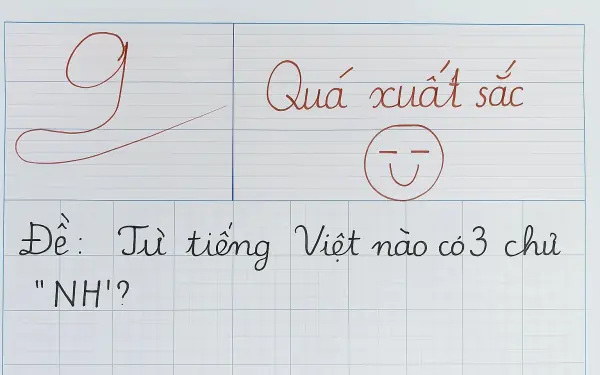 9
Quá xuất sắc
Đề: Từ tiếng Việt nào có 3 chữ
"NH"?